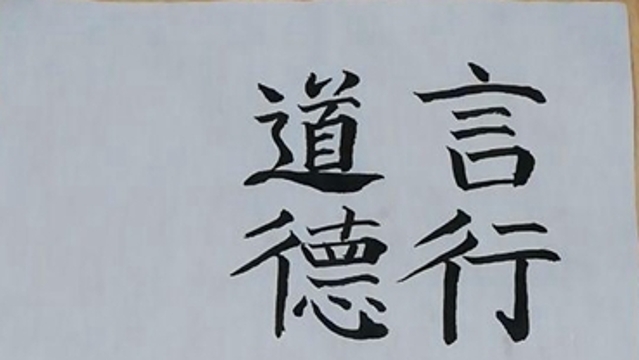 言行
道德